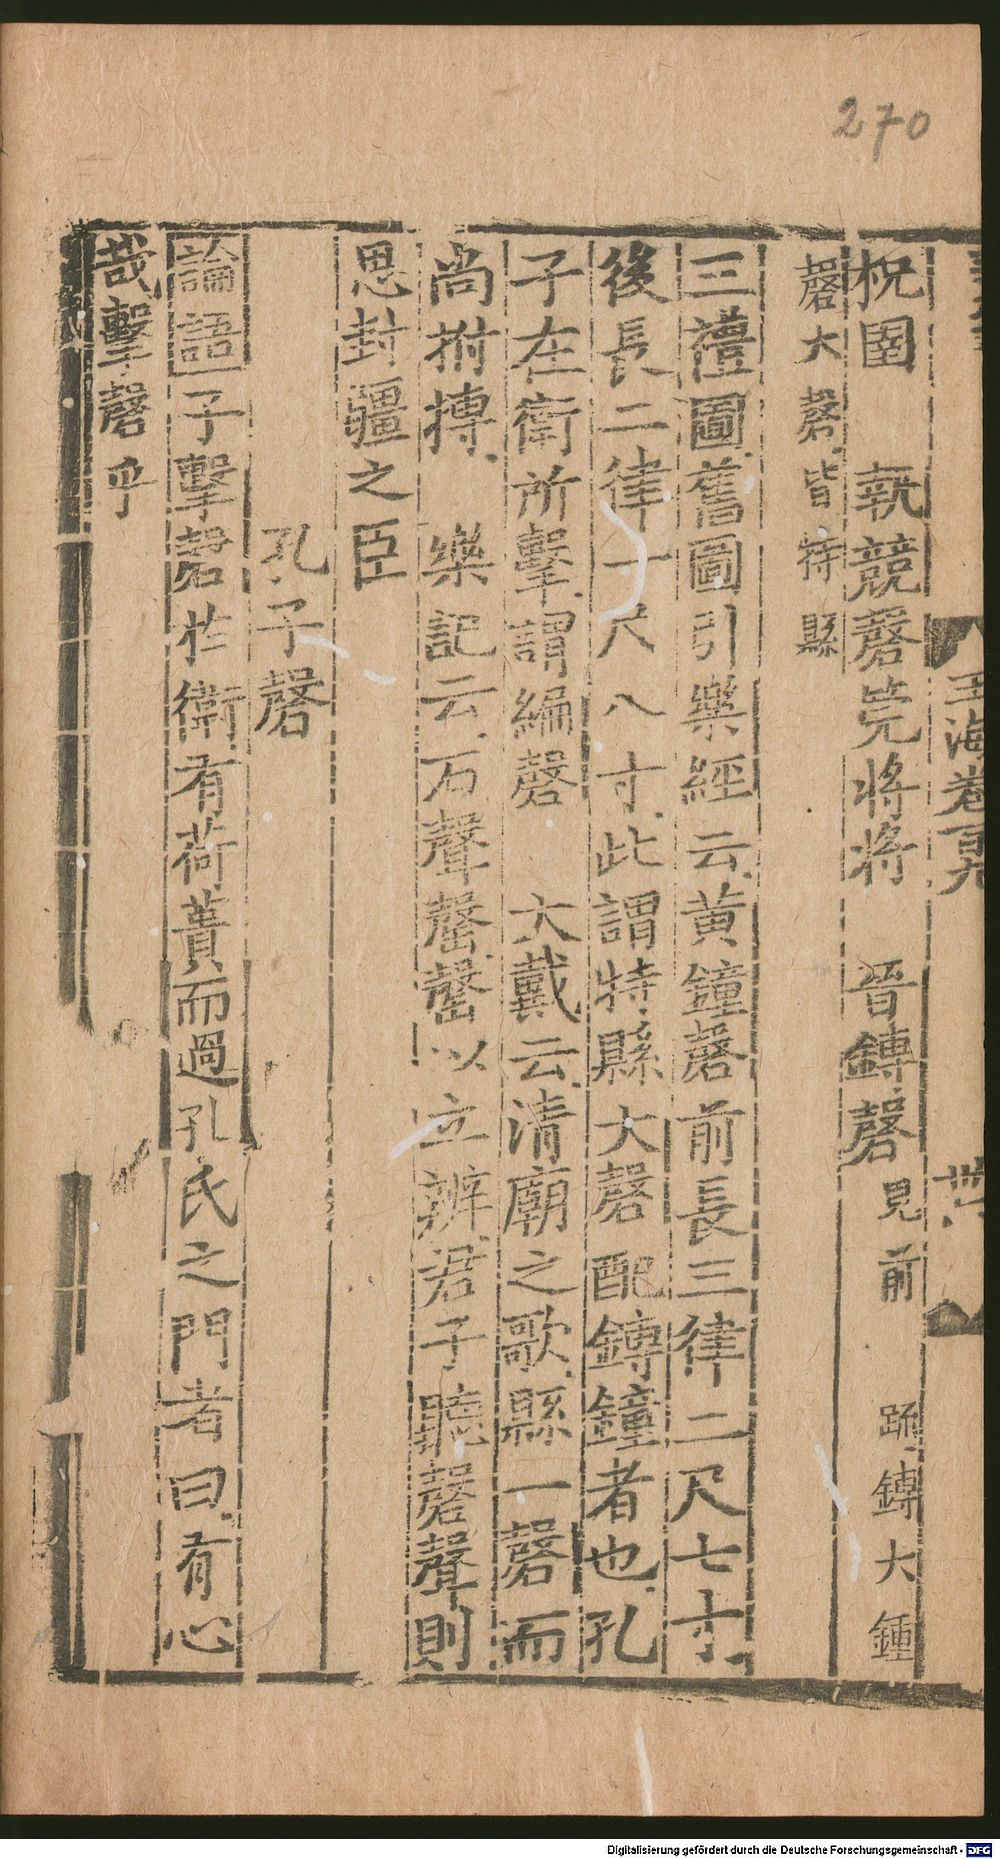 270
玉海卷百九
柷圄　執競磬筦將將　晉鏄磬見前　䟽鏄大鍾
磬大磬皆特縣
三禮圖舊圖引樂經云黄鐘磬前長三律二尺七寸
後長二律一尺八寸此謂特縣大磬配鏄鐘者也孔
子在衛所擊謂編磬　大戴云清廟之歌縣一磬而
尚拊搏　樂記云石聲罄罄以立辨君子聽磬聲則
思封疆之臣
孔子磬
論語子擊磬於衛有荷蕢而過孔氏之門者曰有心
哉擊磬乎
Digitalisierung gefördert durch die Deutsche Forschungsgemeinschaft - DFG